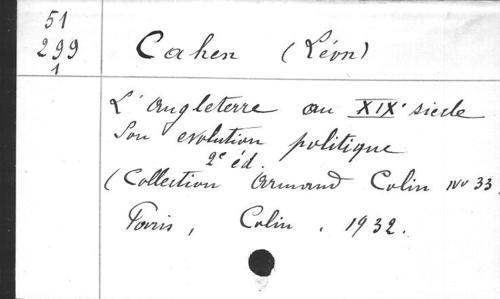 51
299
1
Cahen (Léon)
L'Angleterre au XIXe siecle
Son evolution politique
2e éd.
(Collection Armand Colin No 33
Paris, Colin, 1932.